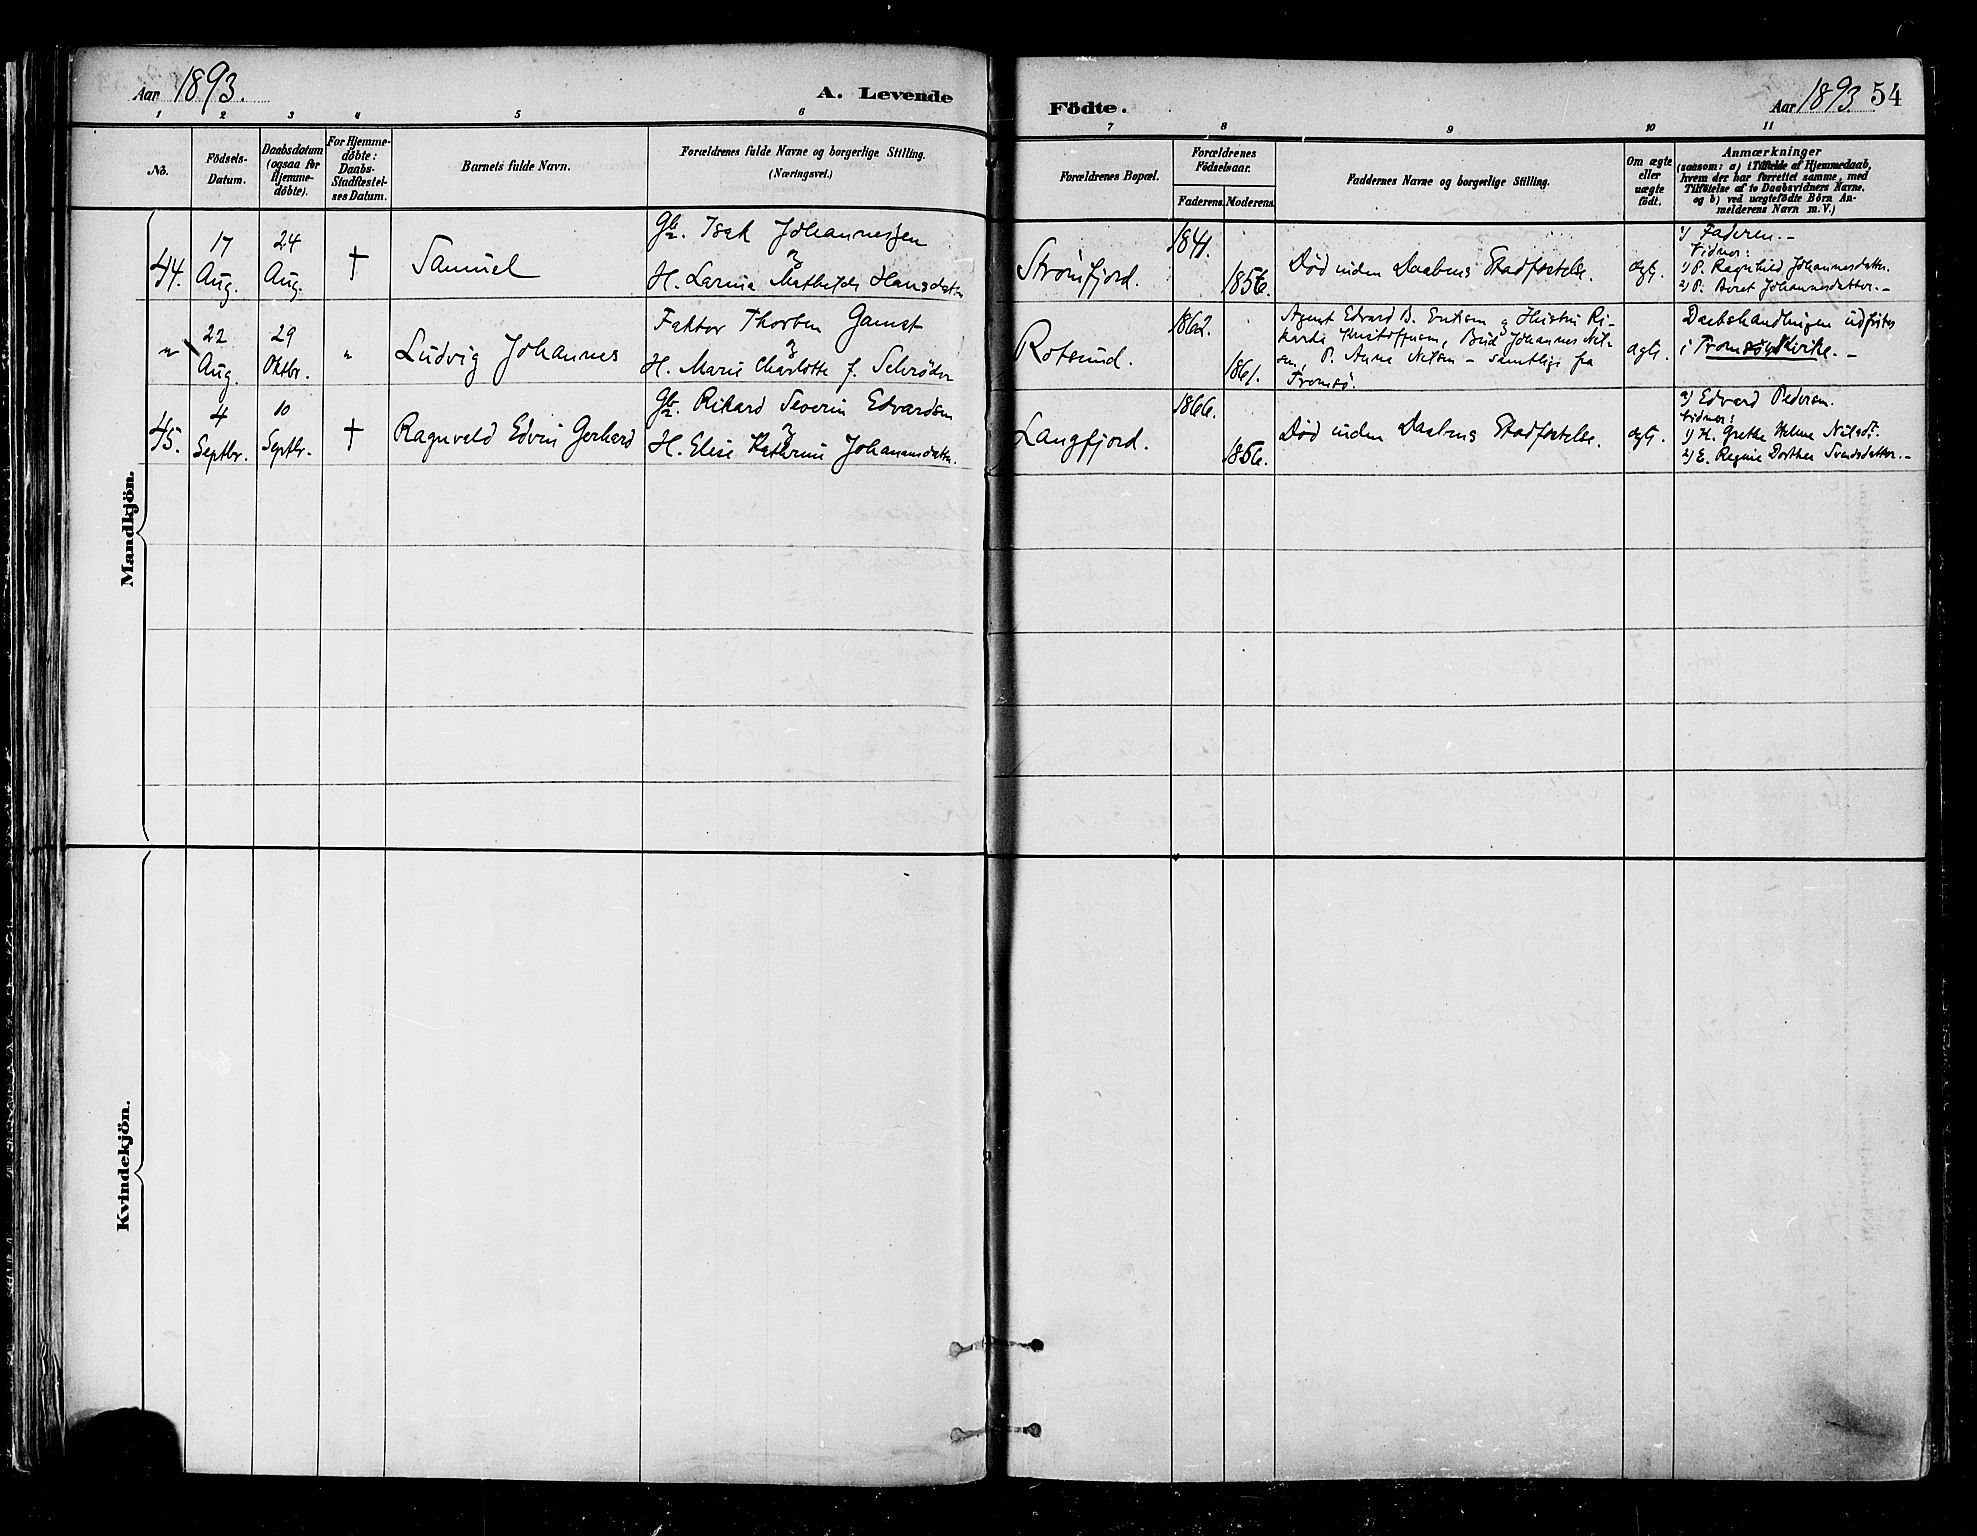 Aar 1893.
A. Levende
Födte.
Aar 1893 54
1 2 3 4 5 6 7 8 9 10 11
No.
Födsels-
Datum.
Daabsdatum
(ogsaa for
Hjemme-
döbte).
For Hjemme-
döbte:
Daabs-
Stadfæstel-
ses Datum.
Barnets fulde Navn.
Forældrenes fulde Navne og borgerlige Stilling.
(Næringsvei.)
Forældrenes Bopæl.
Forældrenes
Födselsaar.
Faderens. Moderens.
Faddernes Navne og borgerlige Stilling.
Om ægte
eller
uægte
födt.
Anmærkninger
(saasom: a) i Tilfælde af Hjemmedaab,
hvem der har forrettet samme, med
Tilföielse af to Daabsvidners Navne.
og b) ved uægtefödte Börn An-
melderens Navn m. V.)
Mandkjön.
44.
17
Aug.
24
Aug.
†
Samuel
Gbr. Isak Johannessen
og
H. Larina Mathilde Hansdatter
Strømfjord.
1841.
1856.
Død inden Daabens Stadfæstelse.
ægte.
1) Faderen. -
Vidner:
1) P. Ragnhild Johannesdatter.
2) P. Beret Johannesdatter. -
"
22
Aug.
29
Oktbr.
"
Ludvig Johannes
Faktor Thorben Gamst
og
H. Marie Charlotte f. Schrøder
Rotsund.
1862.
1861.
Agent Edvard B. og Hustru Ri-
karde Kristoffersen, Johannes Niel-
sen, P. Anna Nielsen - samtlige fra
Tromsø.
ægte.
Daabshandlingen udført
i Tromsø Kirke. -
45.
4
Septbr.
10
Septbr.
†
Ragnvald Edvin Gerhard
Gbr. Rikard Severin Edvardsen
og
H. Elise Kathrine Johannesdatter.
Langfjord.
1866.
1856.
Død inden Daabens Stadfæstelse.
ægte.
a) Edvard Pedersen.
Vidner:
1) H. Grethe Helene Nilsdt.
2) E. Regine Dorthea Svendsdatter. -
Kvindekjön.